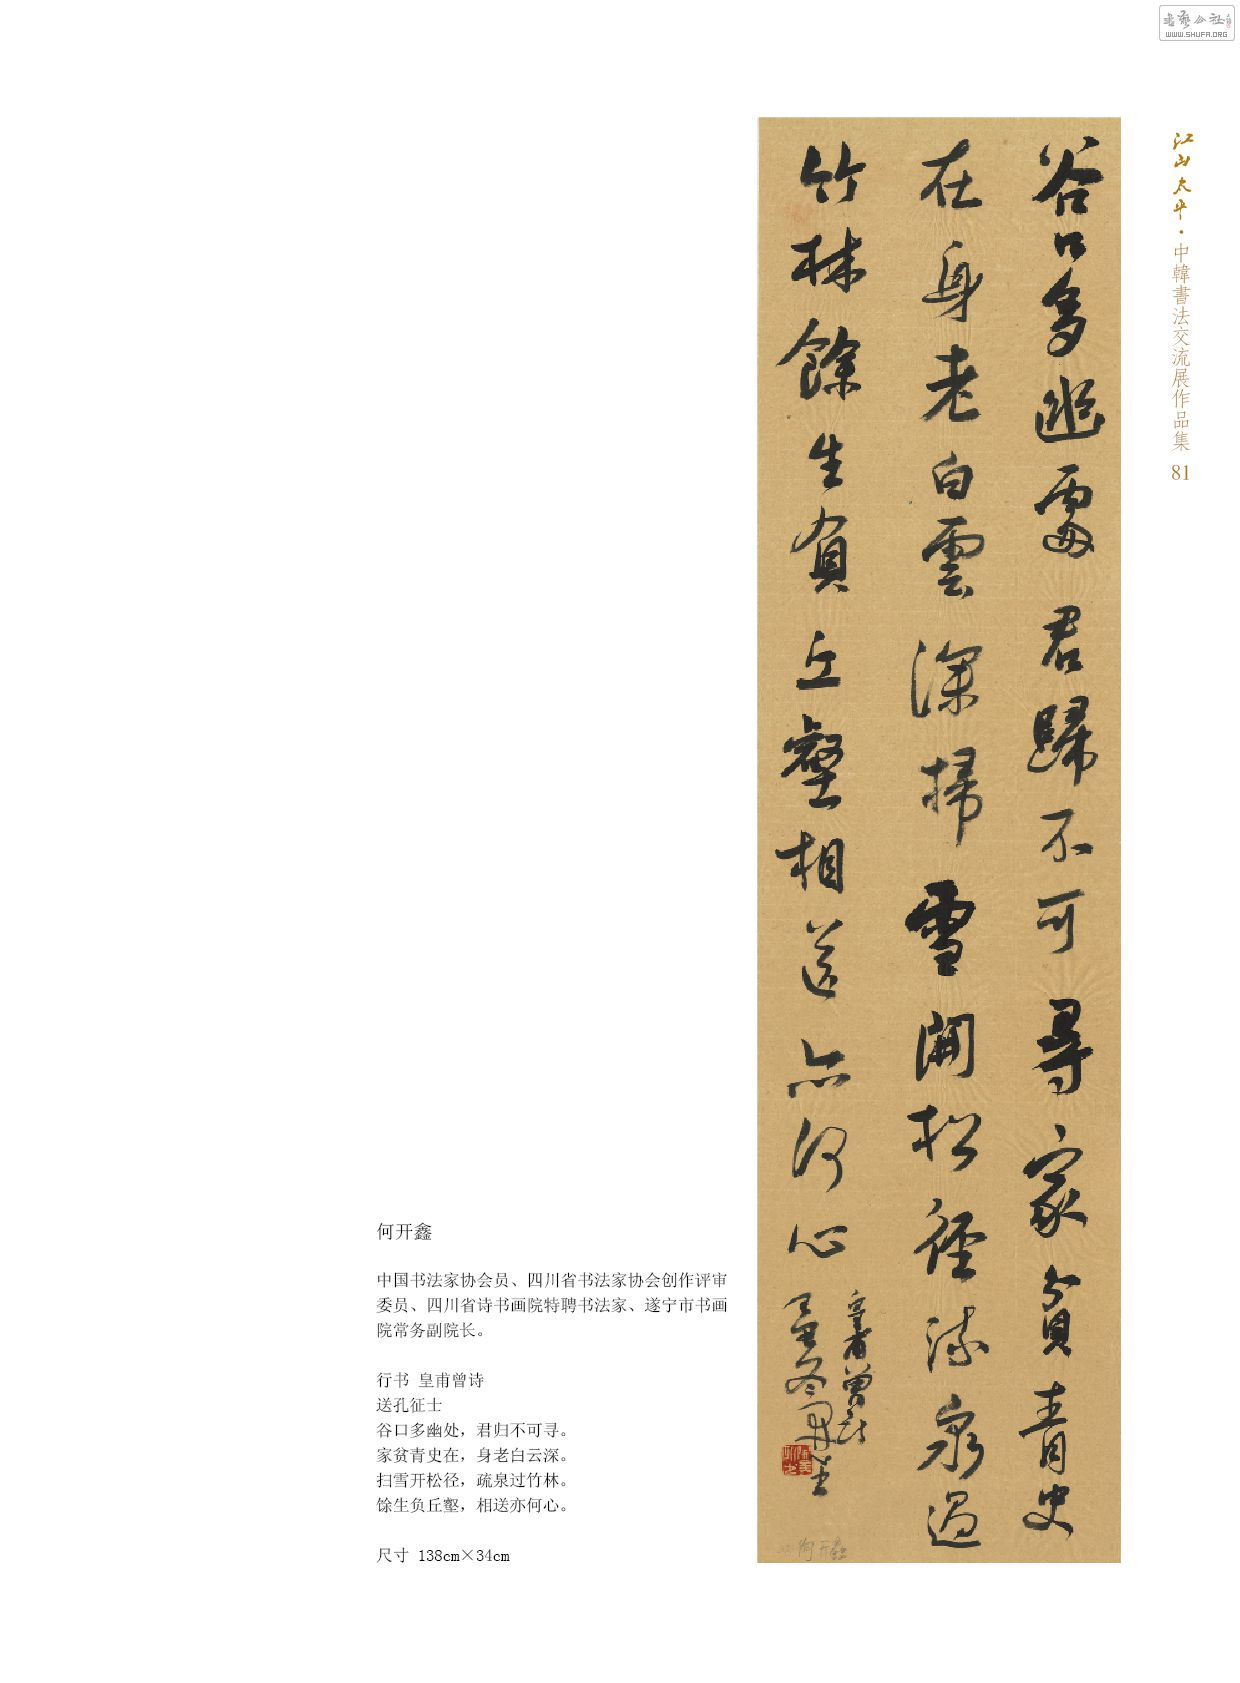 书艺公社
WWW.SHUFA.ORG
江山太平·中韓書法交流展作品集 81
谷口多幽處君歸不可尋家貧青史
在身老白雲深掃雪開松徑疏泉過
竹林餘生負丘壑相送亦何心
何开鑫
中国书法家协会员、四川省书法家协会创作评审
委员、四川省诗书画院特聘书法家、遂宁市书画
院常务副院长。
行书 皇甫曾诗
送孔征士
谷口多幽处，君归不可寻。
家贫青史在，身老白云深。
扫雪开松径，疏泉过竹林。
馀生负丘壑，相送亦何心。
尺寸 138cm×34cm